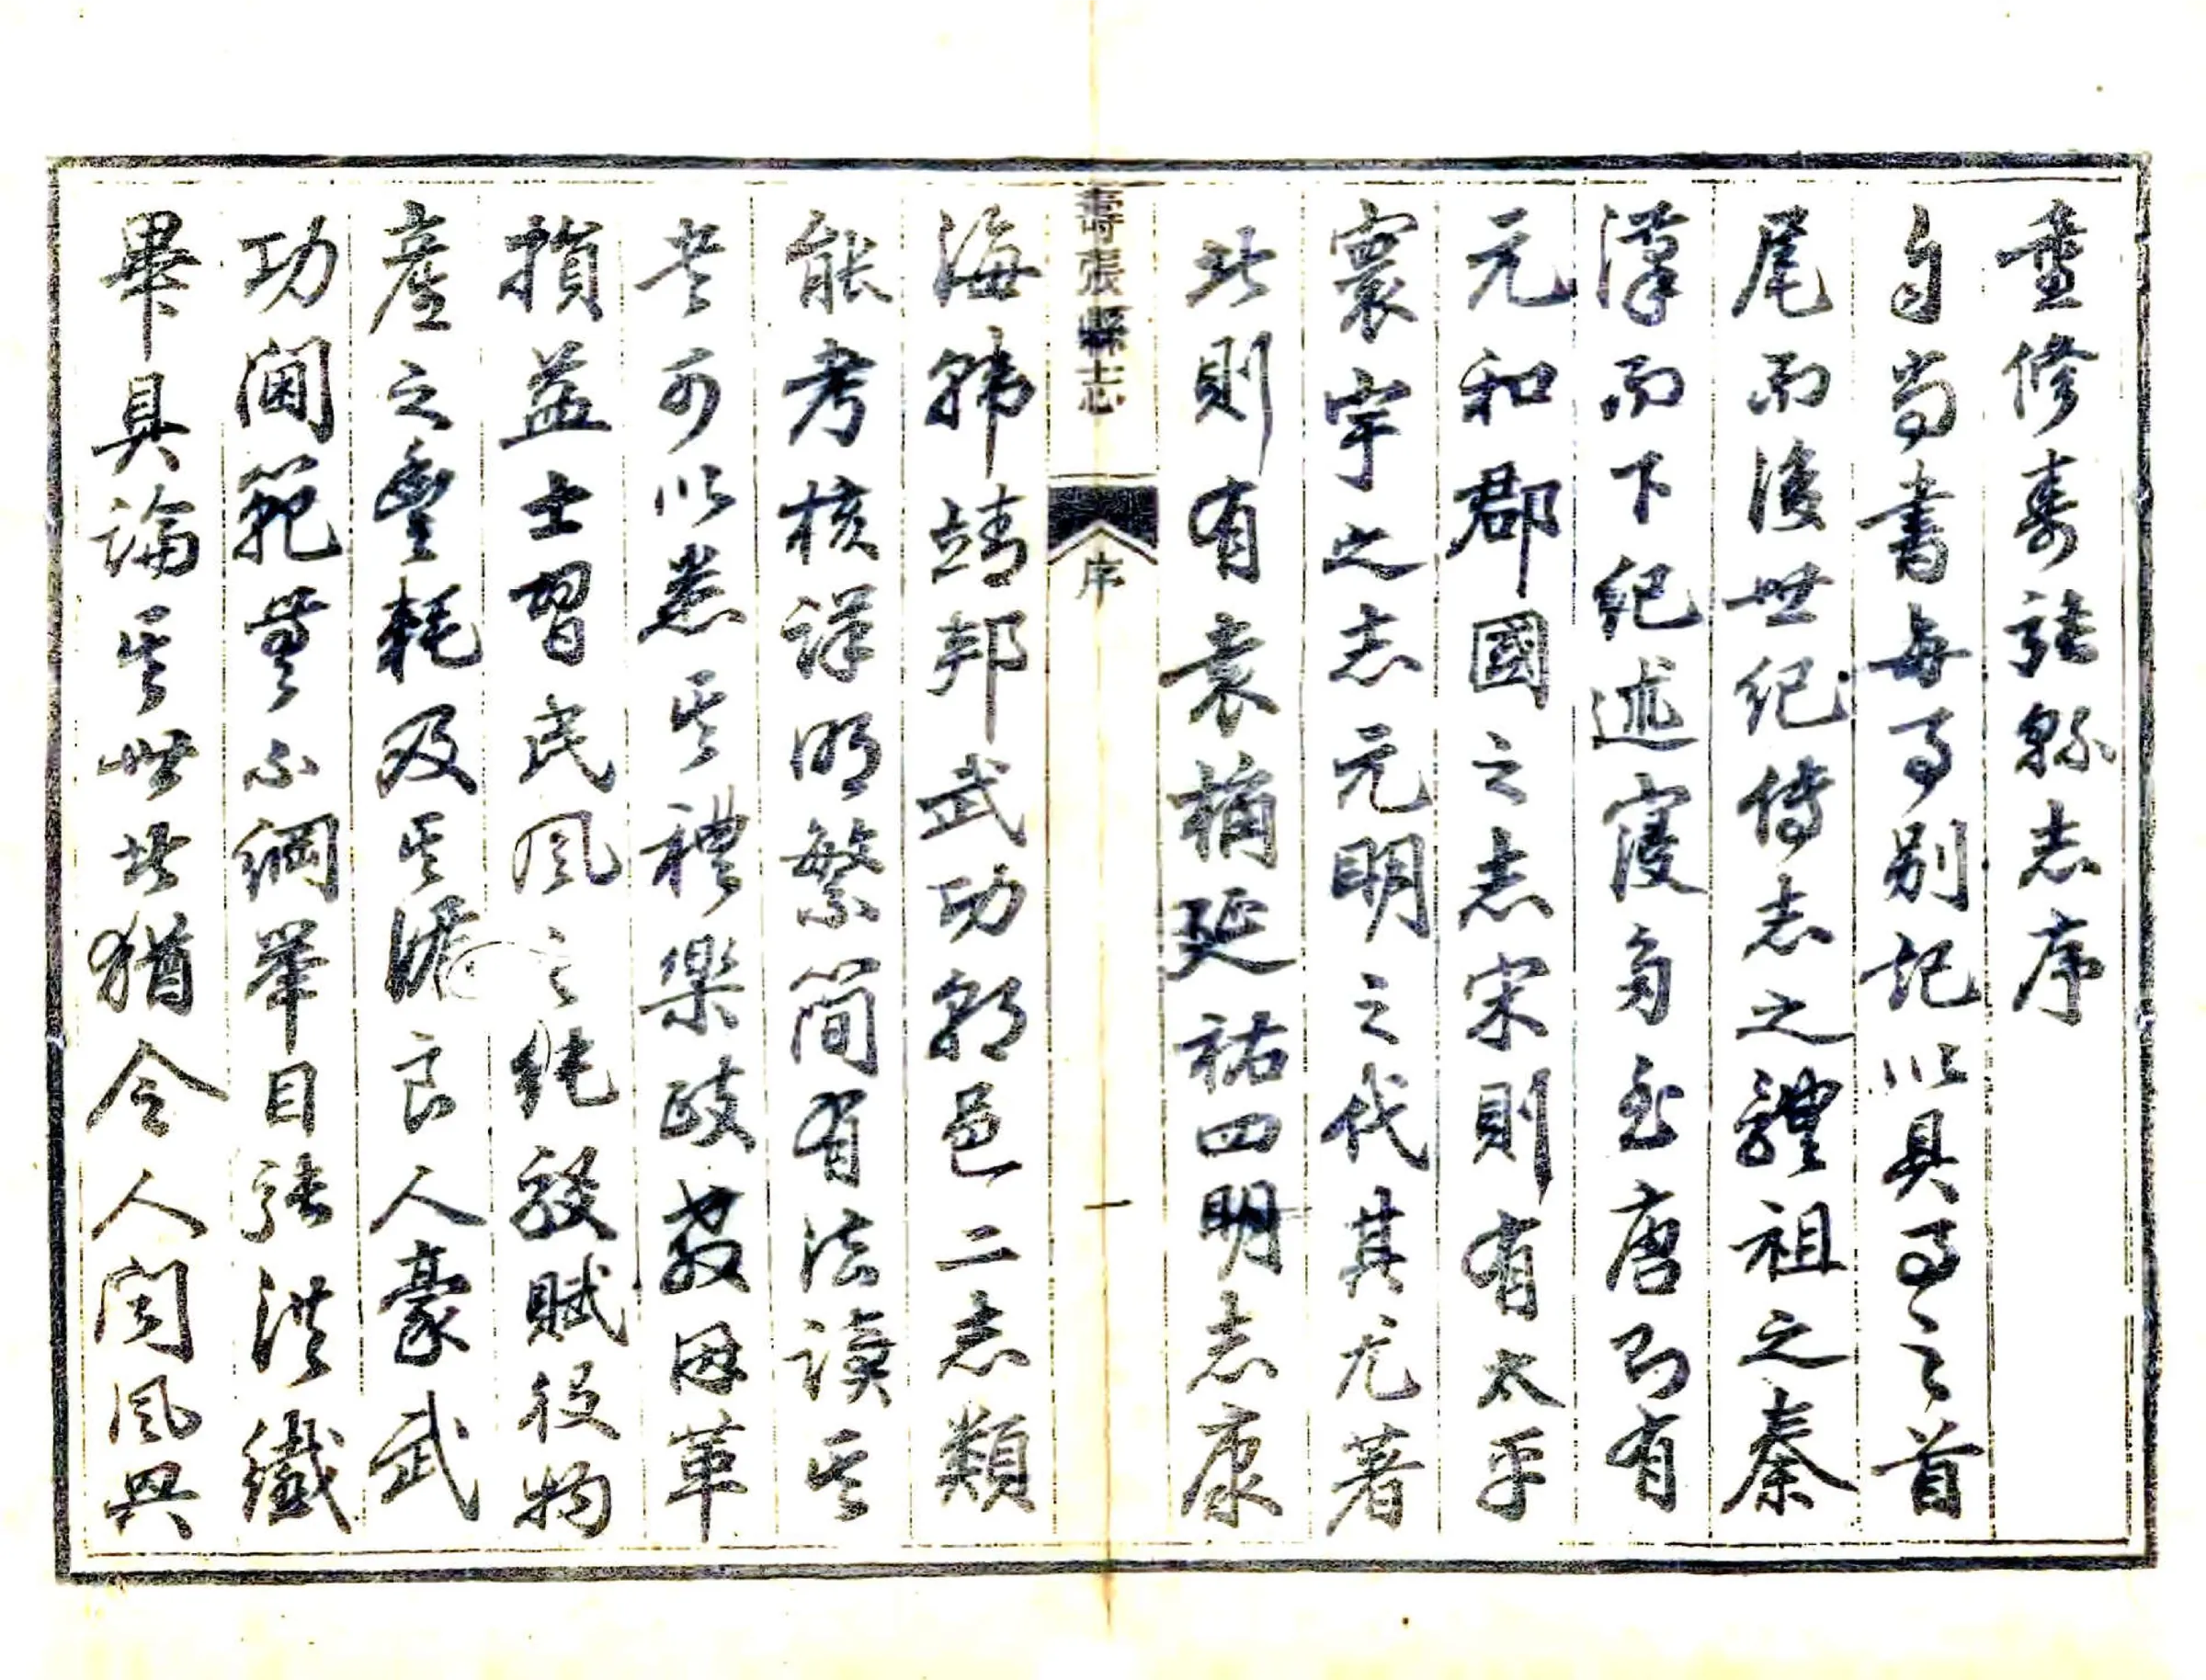 重修壽張縣志序
自尚書每事別記以具事之首
尾而後世紀傳志之體祖之秦
漢而下紀述寖多至唐則有
元和郡國之志宋則有太平
寰宇之志元明之代其尤著
者則有袁桷延祐四明志康
海韓靖邦武功朝邑二志類
能考核詳明繁簡有法讀其
書可以悉其禮樂政教因革
損益士習民風之純殺賦役物
產之豐耗及其循良人豪武
功閫範莫不綱舉目張洪纖
畢具論其世者猶令人聞風興
壽張縣志
序
一